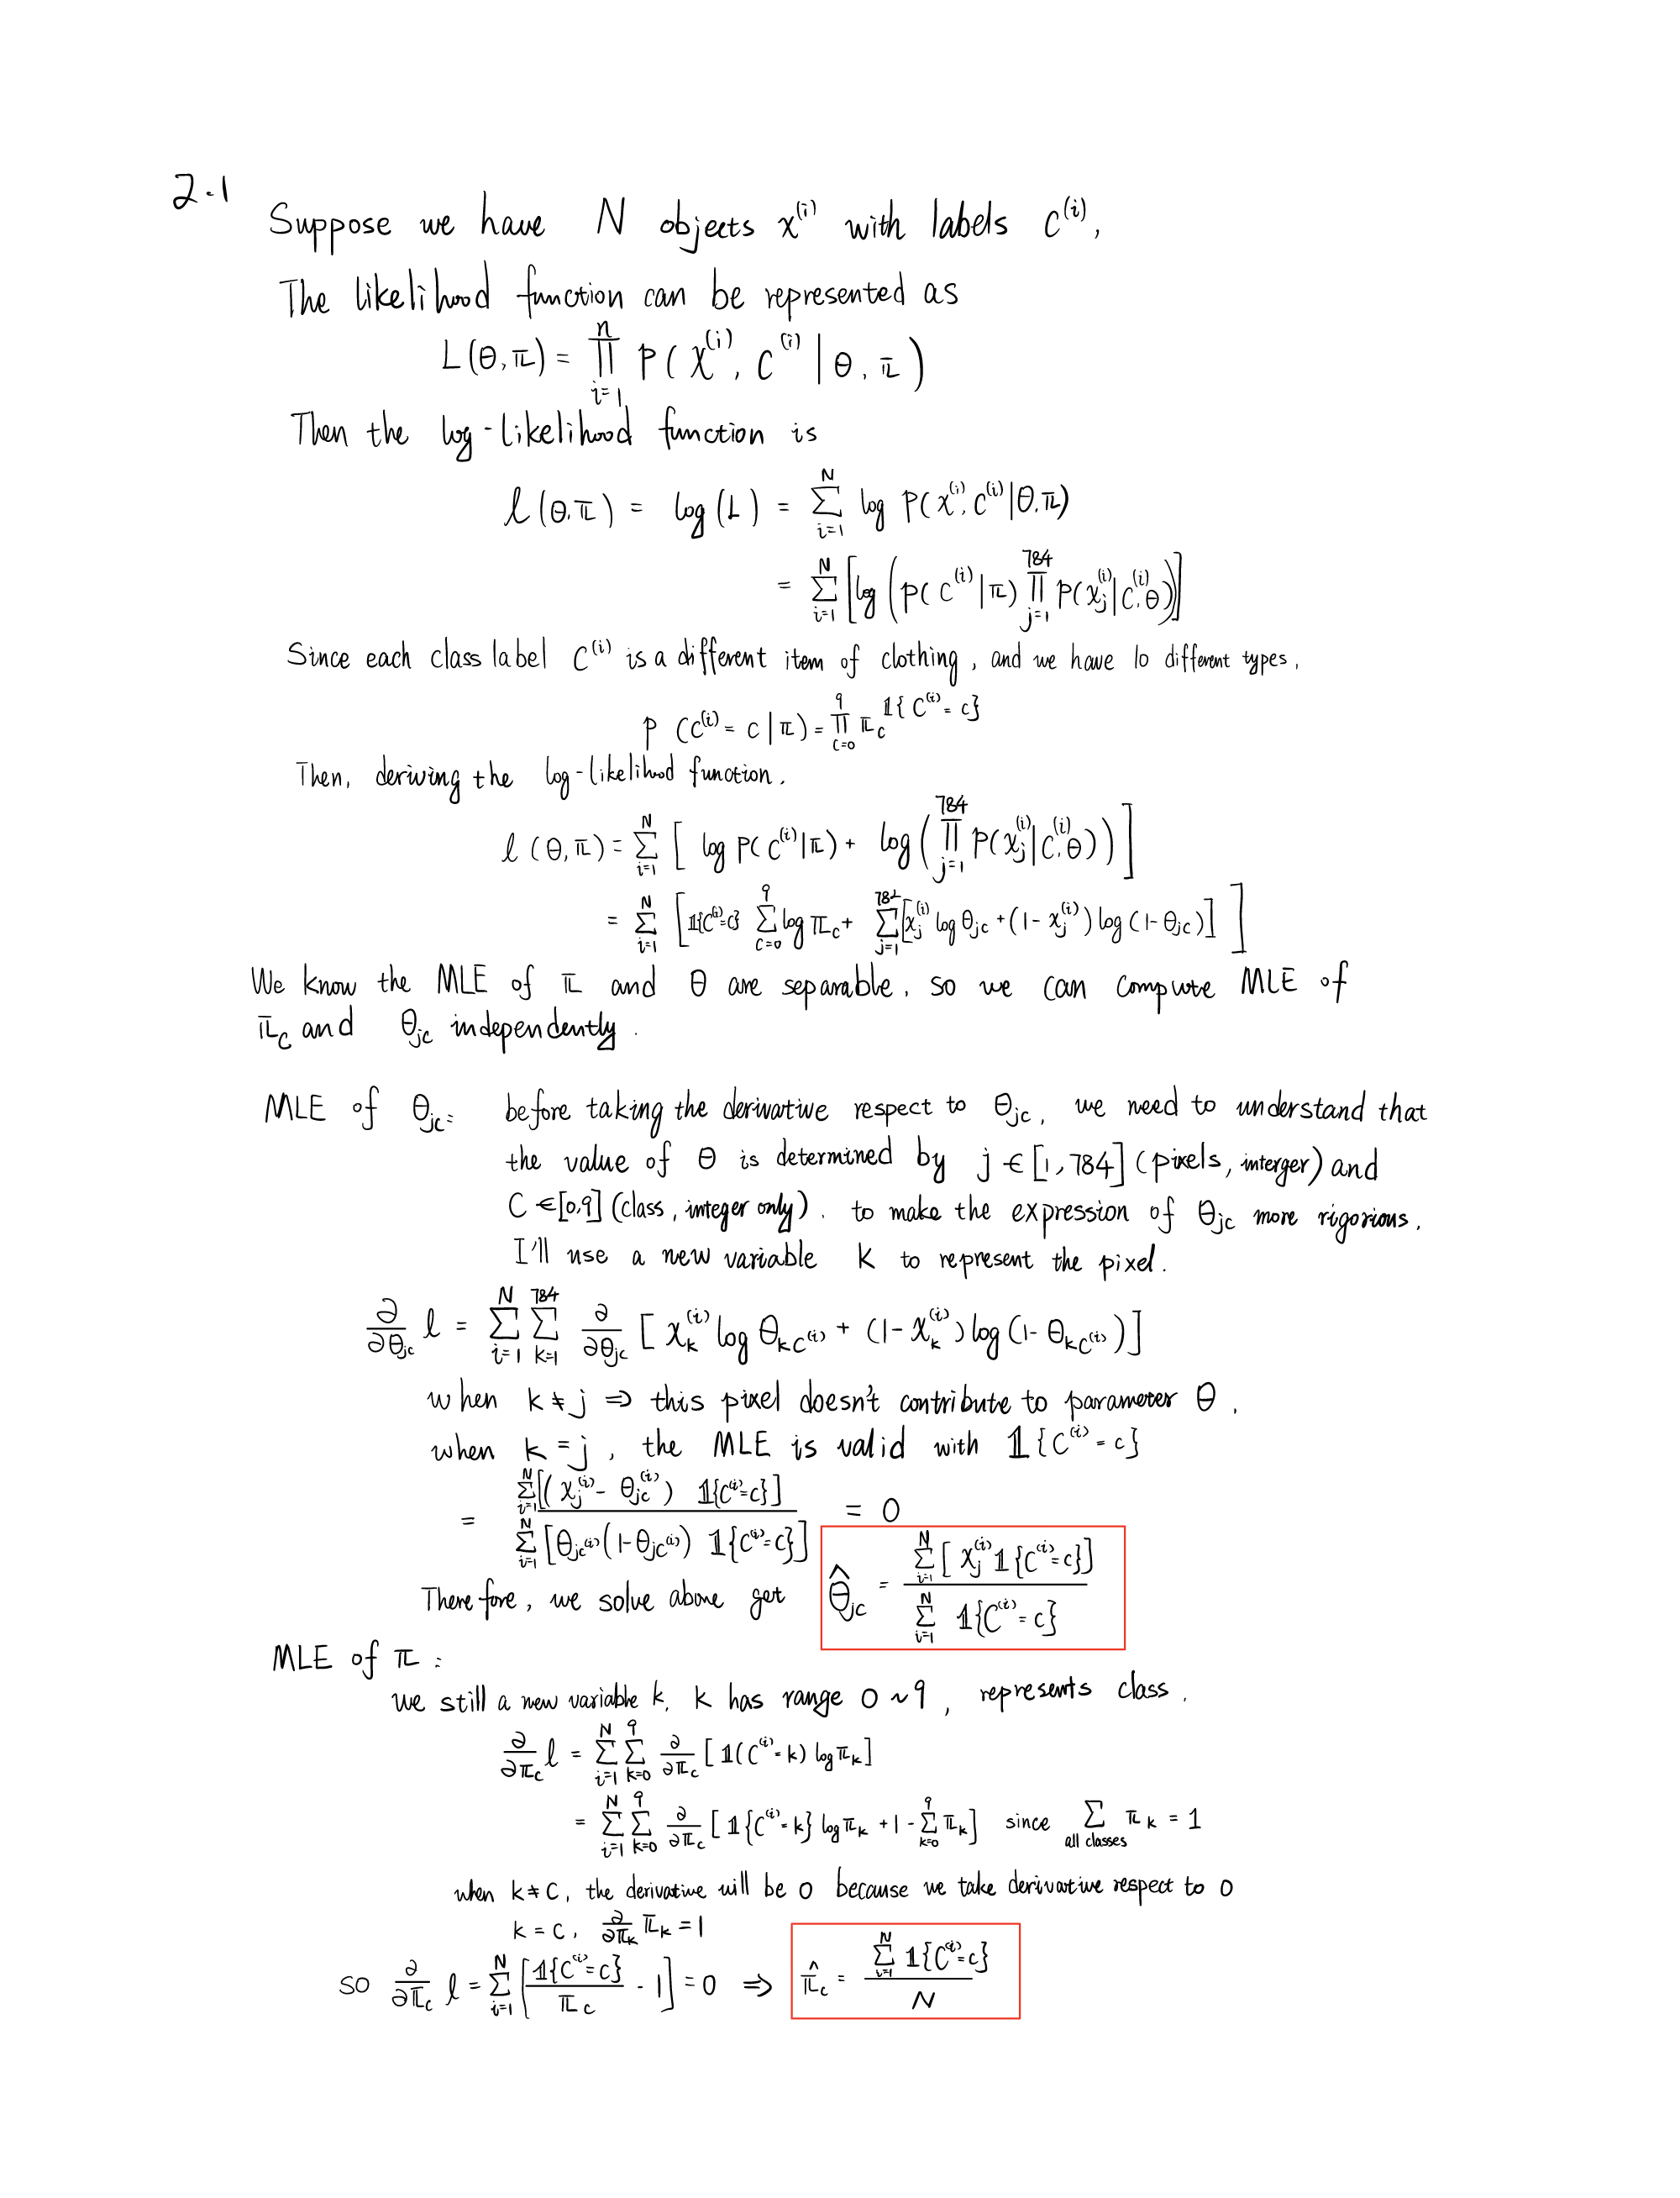 2.1
Suppose we have N objects x^(i) with labels c^(i),
The likelihood function can be represented as
L(θ,π) = ∏_{i=1}^{n} p(x^(i), c^(i) | θ, π)
Then the log-likelihood function is
l(θ,π) = log(L) = ∑_{i=1}^{N} log p(x^(i), c^(i) | θ,π)
= ∑_{i=1}^{N} [log (p(c^(i)|π) ∏_{j=1}^{784} p(x_j^(i) | c^(i), θ))]
Since each class label c^(i) is a different item of clothing, and we have 10 different types,
p(c^(i) = c | π) = ∏_{c=0}^{9} π_c^{𝟙{c^(i) = c}}
Then, deriving the log-likelihood function.
l(θ,π) = ∑_{i=1}^{N} [ log p(c^(i)|π) + log(∏_{j=1}^{784} p(x_j^(i) | c^(i), θ)) ]
= ∑_{i=1}^{N} [ 𝟙{c^(i)=c} ∑_{c=0}^{9} log π_c + ∑_{j=1}^{784} [x_j^(i) log θ_jc + (1 - x_j^(i)) log(1 - θ_jc)] ]
We know the MLE of π and θ are separable, so we can compute MLE of
π_c and θ_jc independently.
MLE of θ_jc: before taking the derivative respect to θ_jc, we need to understand that
the value of θ is determined by j ∈ [1, 784] (pixels, interger) and
C ∈ [0,9] (class, integer only). to make the expression of θ_jc more rigorious,
I'll use a new variable k to represent the pixel.
∂/∂θ_jc l = ∑_{i=1}^{N} ∑_{k=1}^{784} ∂/∂θ_jc [ x_k^(i) log θ_kc^(i) + (1 - x_k^(i)) log(1 - θ_kc^(i)) ]
when k ≠ j ⇒ this pixel doesn't contribute to parameter θ.
when k = j, the MLE is valid with 𝟙{c^(i) = c}
= ∑_{i=1}^{N} [(x_j^(i) - θ_jc^(i)) 𝟙{c^(i)=c}] / ∑_{i=1}^{N} [θ_jc^(i) (1 - θ_jc^(i)) 𝟙{c^(i)=c}] = 0
Therefore, we solve above get θ̂_jc = ∑_{i=1}^{N} [x_j^(i) 𝟙{c^(i)=c}] / ∑_{i=1}^{N} 𝟙{c^(i)=c}
MLE of π:
we still a new variable k, k has range 0 ~ 9, represents class.
∂/∂π_c l = ∑_{i=1}^{N} ∑_{k=0}^{9} ∂/∂π_c [ 𝟙(c^(i)=k) log π_k ]
= ∑_{i=1}^{N} ∑_{k=0}^{9} ∂/∂π_c [ 𝟙{c^(i)=k} log π_k + 1 - ∑_{k=0}^{9} π_k ] since ∑_{all classes} π_k = 1
when k ≠ c, the derivative will be 0 because we take derivative respect to 0
k = c, ∂/∂π_k π_k = 1
so ∂/∂π_c l = ∑_{i=1}^{N} [ 𝟙{c^(i)=c} / π_c - 1 ] = 0 ⇒ π̂_c = ∑_{i=1}^{N} 𝟙{c^(i)=c} / N